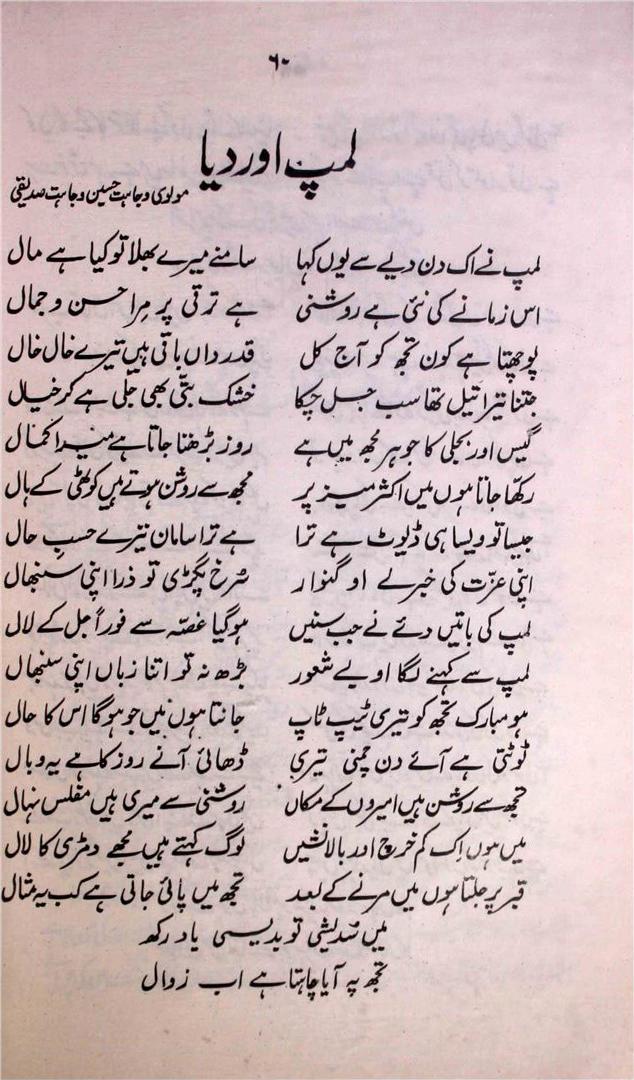 ۶۰
لمپ اور دیا
مولوی وجاہت حسین وجاہت صدیقی
لمپ نے اک دن دیے سے یوں کہا سامنے میرے بھلا تو کیا ہے مال
اس زمانے کی نئی ہے روشنی ہے ترقی پر مرا حسن و جمال
پوچھتا ہے کون تجھ کو آج کل قدرداں باقی ہیں تیرے خال خال
جتنا تیرا تیل تھا سب جل چکا خشک بتی بھی جلی ہے کر خیال
گیس اور بجلی کا جوہر مجھ میں ہے روز بڑھتا جاتا ہے میرا کمال
رکھا جاتا ہوں میں اکثر میز پر مجھ سے روشن ہوتے ہیں کوٹھی کے ہال
جیسا تو ویسا ہی ڈیوٹ ہے ترا ہے ترا سامان تیرے حسبِ حال
اپنی عزّت کی خبر لے او گنوار سُرخ پگڑی تو ذرا اپنی سنبھال
لمپ کی باتیں دئے نے جب سنیں ہوگیا غصّہ سے فوراً جل کے لال
لمپ سے کہنے لگا او بے شعور بڑھ نہ تو اتنا زباں اپنی سنبھال
ہو مبارک تجھ کو تیری ٹیپ ٹاپ جانتا ہوں میں جو ہوگا اس کا حال
ٹوٹتی ہے آئے دن چمنی تیری ڈھائی آنے روز کا ہے یہ وبال
تجھ سے روشن ہیں امیروں کے مکاں روشنی سے میری ہیں مفلس نہال
میں ہوں اِک کم خرچ اور بالا نشیں لوگ کہتے ہیں مجھے دمڑی کا لال
قبر پر جلتا ہوں میں مرنے کے بعد تجھ میں پائی جاتی ہے کب یہ مثال
میں سُدیشی تو بدیسی یاد رکھ
تجھ پہ آیا چاہتا ہے اب زوال